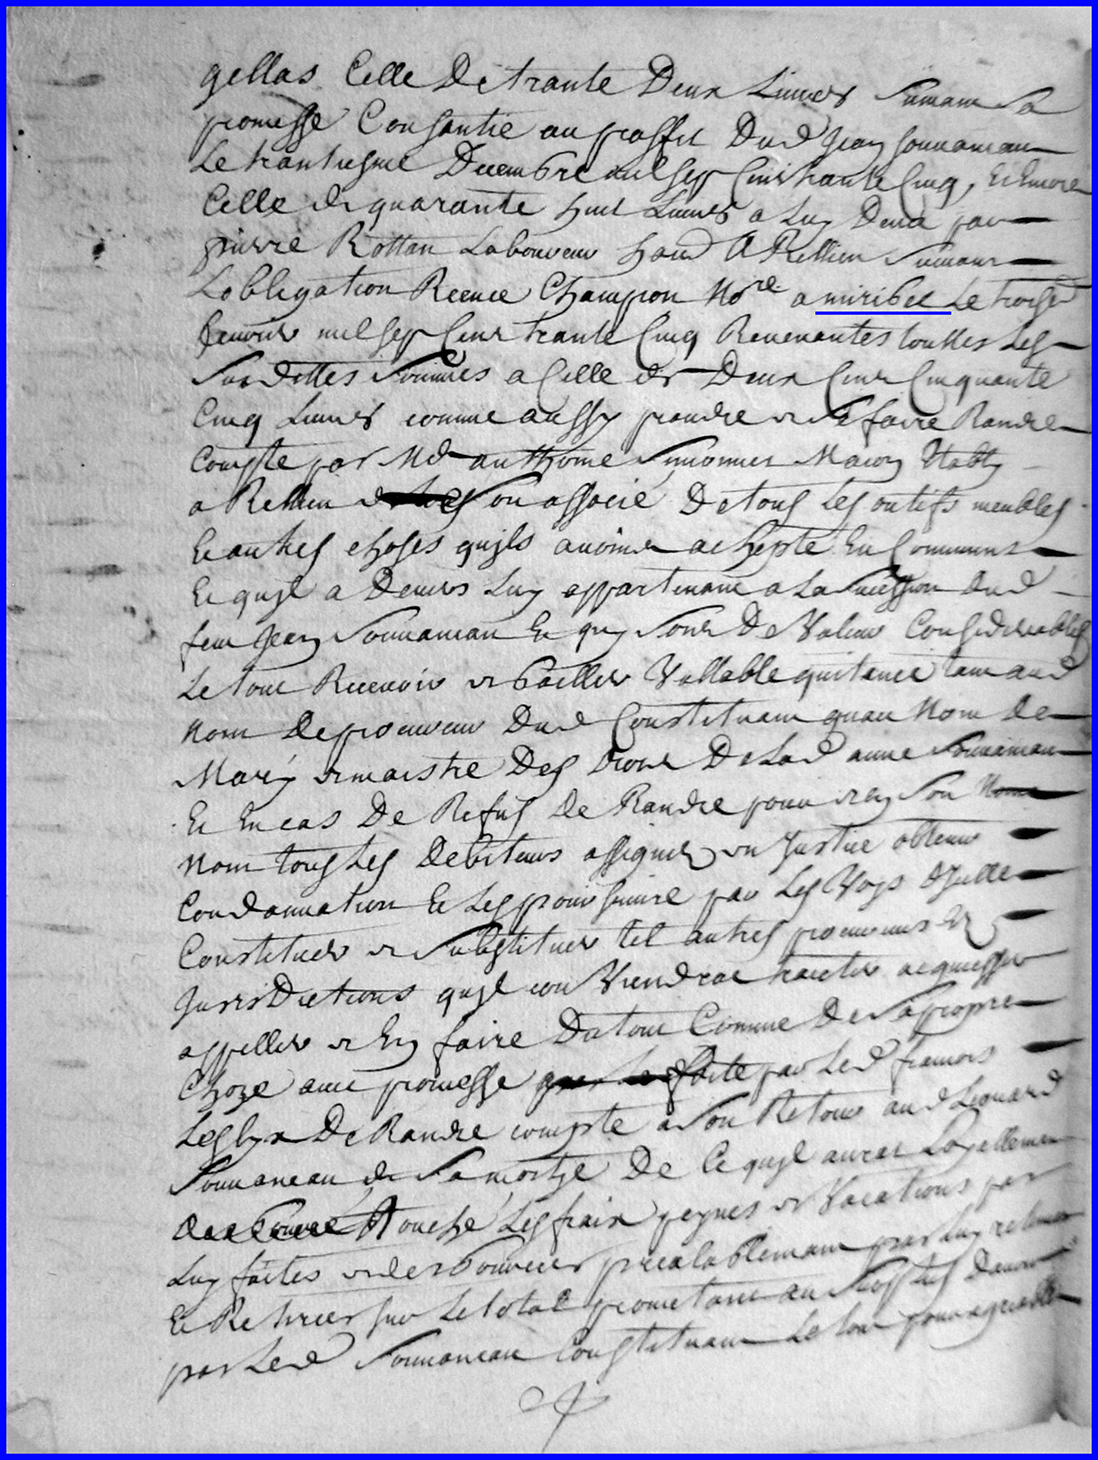 gellas Celle De trante Deux Livres suivant Sa
promesse Consantie au proffit Dud Jean Sounaneau
Le trantiesme Decembre mil sept Cens trante Cinq, Et Encore
Celle de quarante huit Livres a Luy Deue par
pierre Rottan Laboureur hand A Rellien suivant
Lobligation Receue Champion Nore a miribel Le trois
Janvier mil sept Cens trante Cinq Revenantes touttes Les
Susdittes sommes a Celle de Deux Cens Cinquante
Cinq Livres comme aussy prandre et se faire Randre
Compte par Md anthoine Simonnet Macon habt
a Rellien son associé De tous Les outifs meubles
Et autres choses quils avoient achepté En Commun
Et quil a Devers Luy appartenant a La succession dud
feu Jean Sounaneau Et quy sont De Valeur Considerables
Le tout Recevoir et bailler Vallable quitance tant aud
Nom De procureur Dud Constituant quau Nom De
Mary et maistre Des Droits De Lad anne Sounaneau
Et En cas De Refus De Randre pourra en son
Nom tous Les Debiteurs assigner en Justice obtenir
Condannation Et Les poursuivre par Les Voys Dicelle
Constituer et substituer tel autres procureurs Et
Jurisdictions quil conviendrat traicter acquiesser
appeller et En faire Du tout Comme De sa propre
Choze avec promesse faite par Led francois
De Randre compte a son Retour aud Leonard
Sounaneau de Sa De Ce quil aurat Loyallement
touché Les fraix peynes et Vacations par
Luy faites et prealablement par Luy
Et Retirer sur Le total prometant au
par Led Sounaneau Constituant Le tout pour agreable